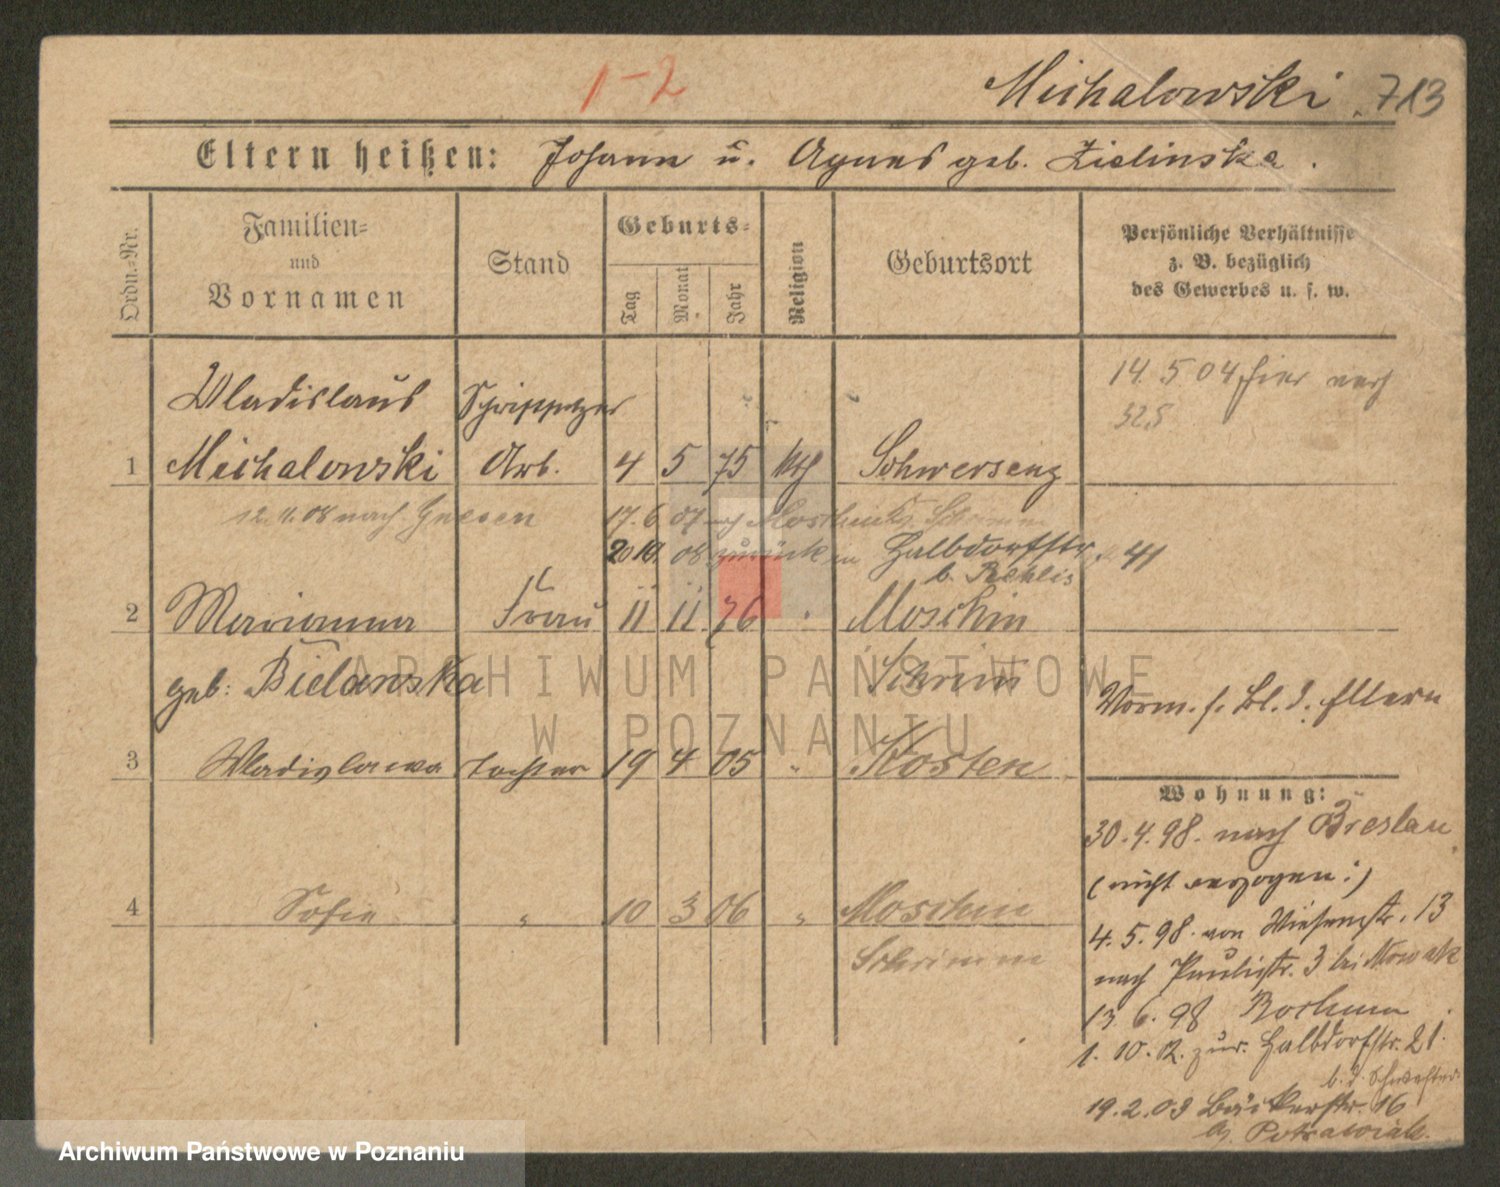 1-2
Michalowski 713
Eltern heißen: Johann u. Agnes geb. Zielinska.
Ordn.-Nr.
Familien-
und
Vornamen
Stand
Geburts-
Tag
Monat
Jahr
Religion
Geburtsort
Persönliche Verhältnisse
z. B. bezüglich
des Gewerbes u. s. w.
14. 5 04 hier
325
Wladislaus Schriftsetzer
1 Michalowski Arb. 4 5 75 kth Schwersenz
12. 11. 08 nach Gnesen 17. 6. 07 nach Moschin Kr. Schrimm
20 10. 08 zurück in Halbdorfstr. 41
b. Rehlis
2 Marianna Frau 11 11 76 " Moschin
geb: Bielawska Schrimm
Vorm. s. Bl. d. Eltern
3 Wladislawa Tochter 19 4 05 " Kosten
Wohnung:
30. 4. 98. nach Breslau
(nicht verzogen:)
4 Sofie " 10 3 06 " Moschin
Schrimm
4. 5. 98. von Wiesenstr. 13
nach Paulistr. 3 bei Nowak
13 6. 98 Bochum
1. 10. 02. zur. Halbdorfstr. 21.
b. d. Schwester
19. 2. 03 Bäckerstr. 16
b. Potrawiak.
ARCHIWUM PAŃSTWOWE
W POZNANIU
Archiwum Państwowe w Poznaniu